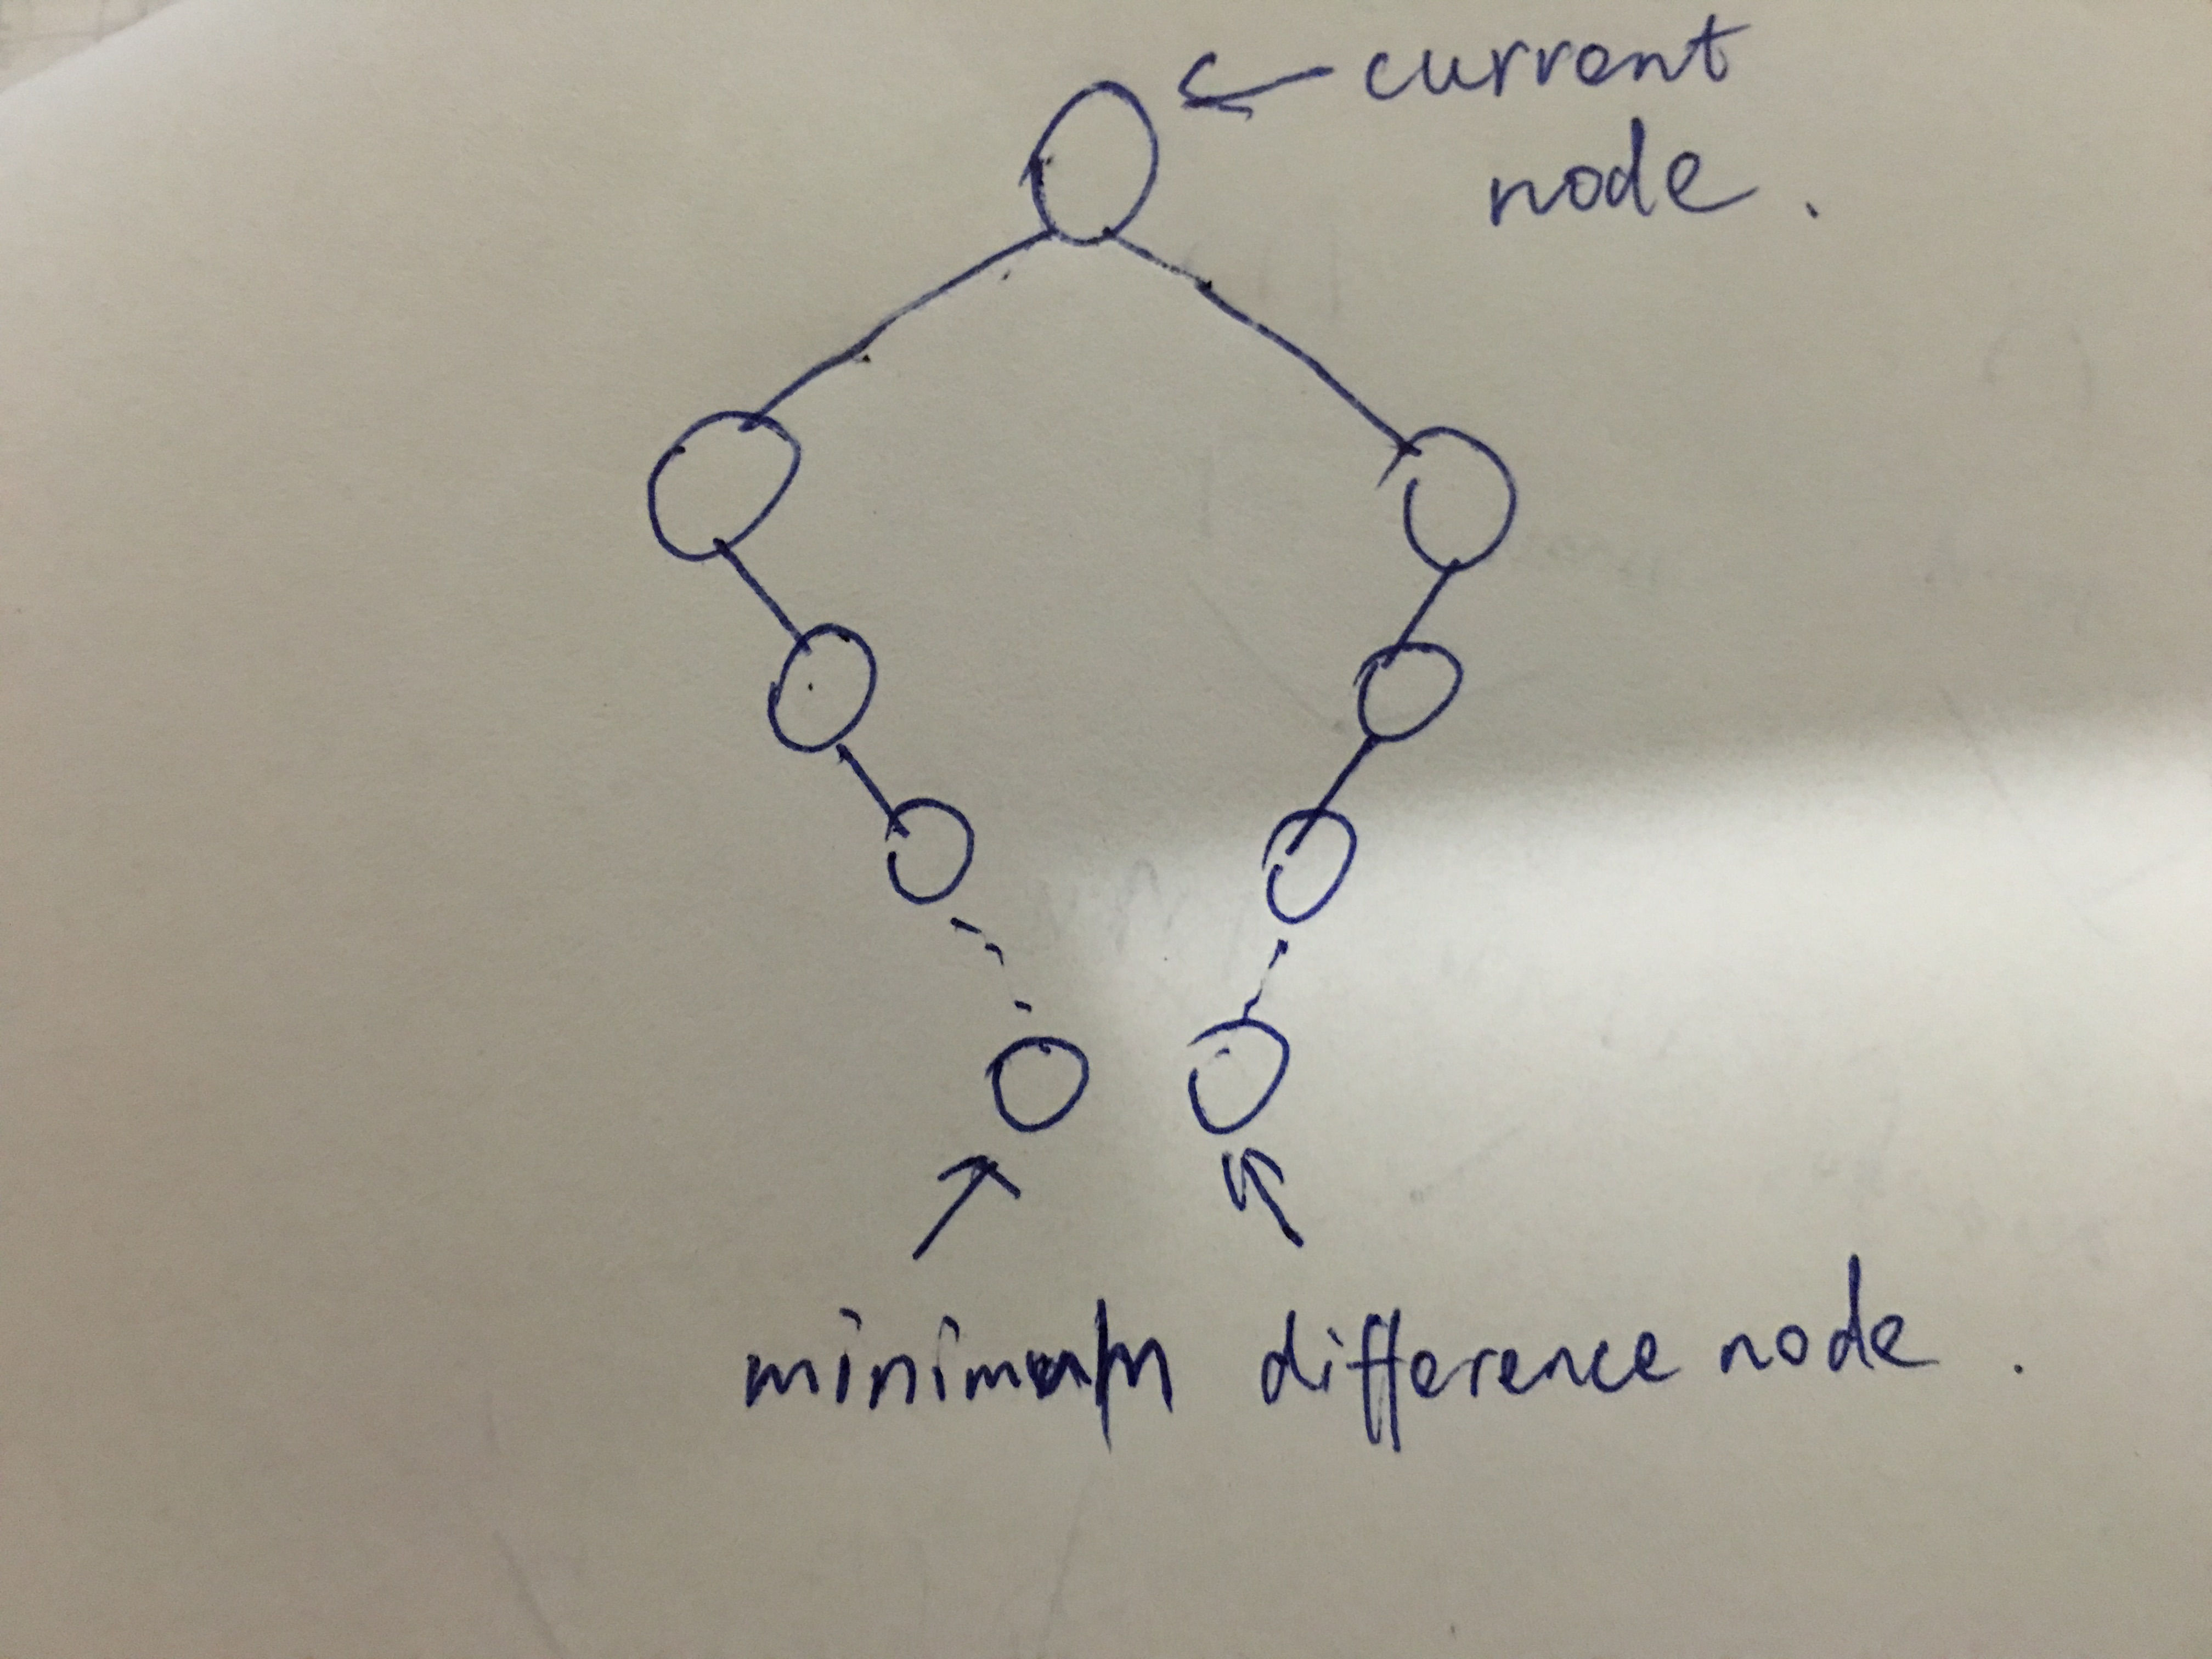 current
node.
minimum difference node.